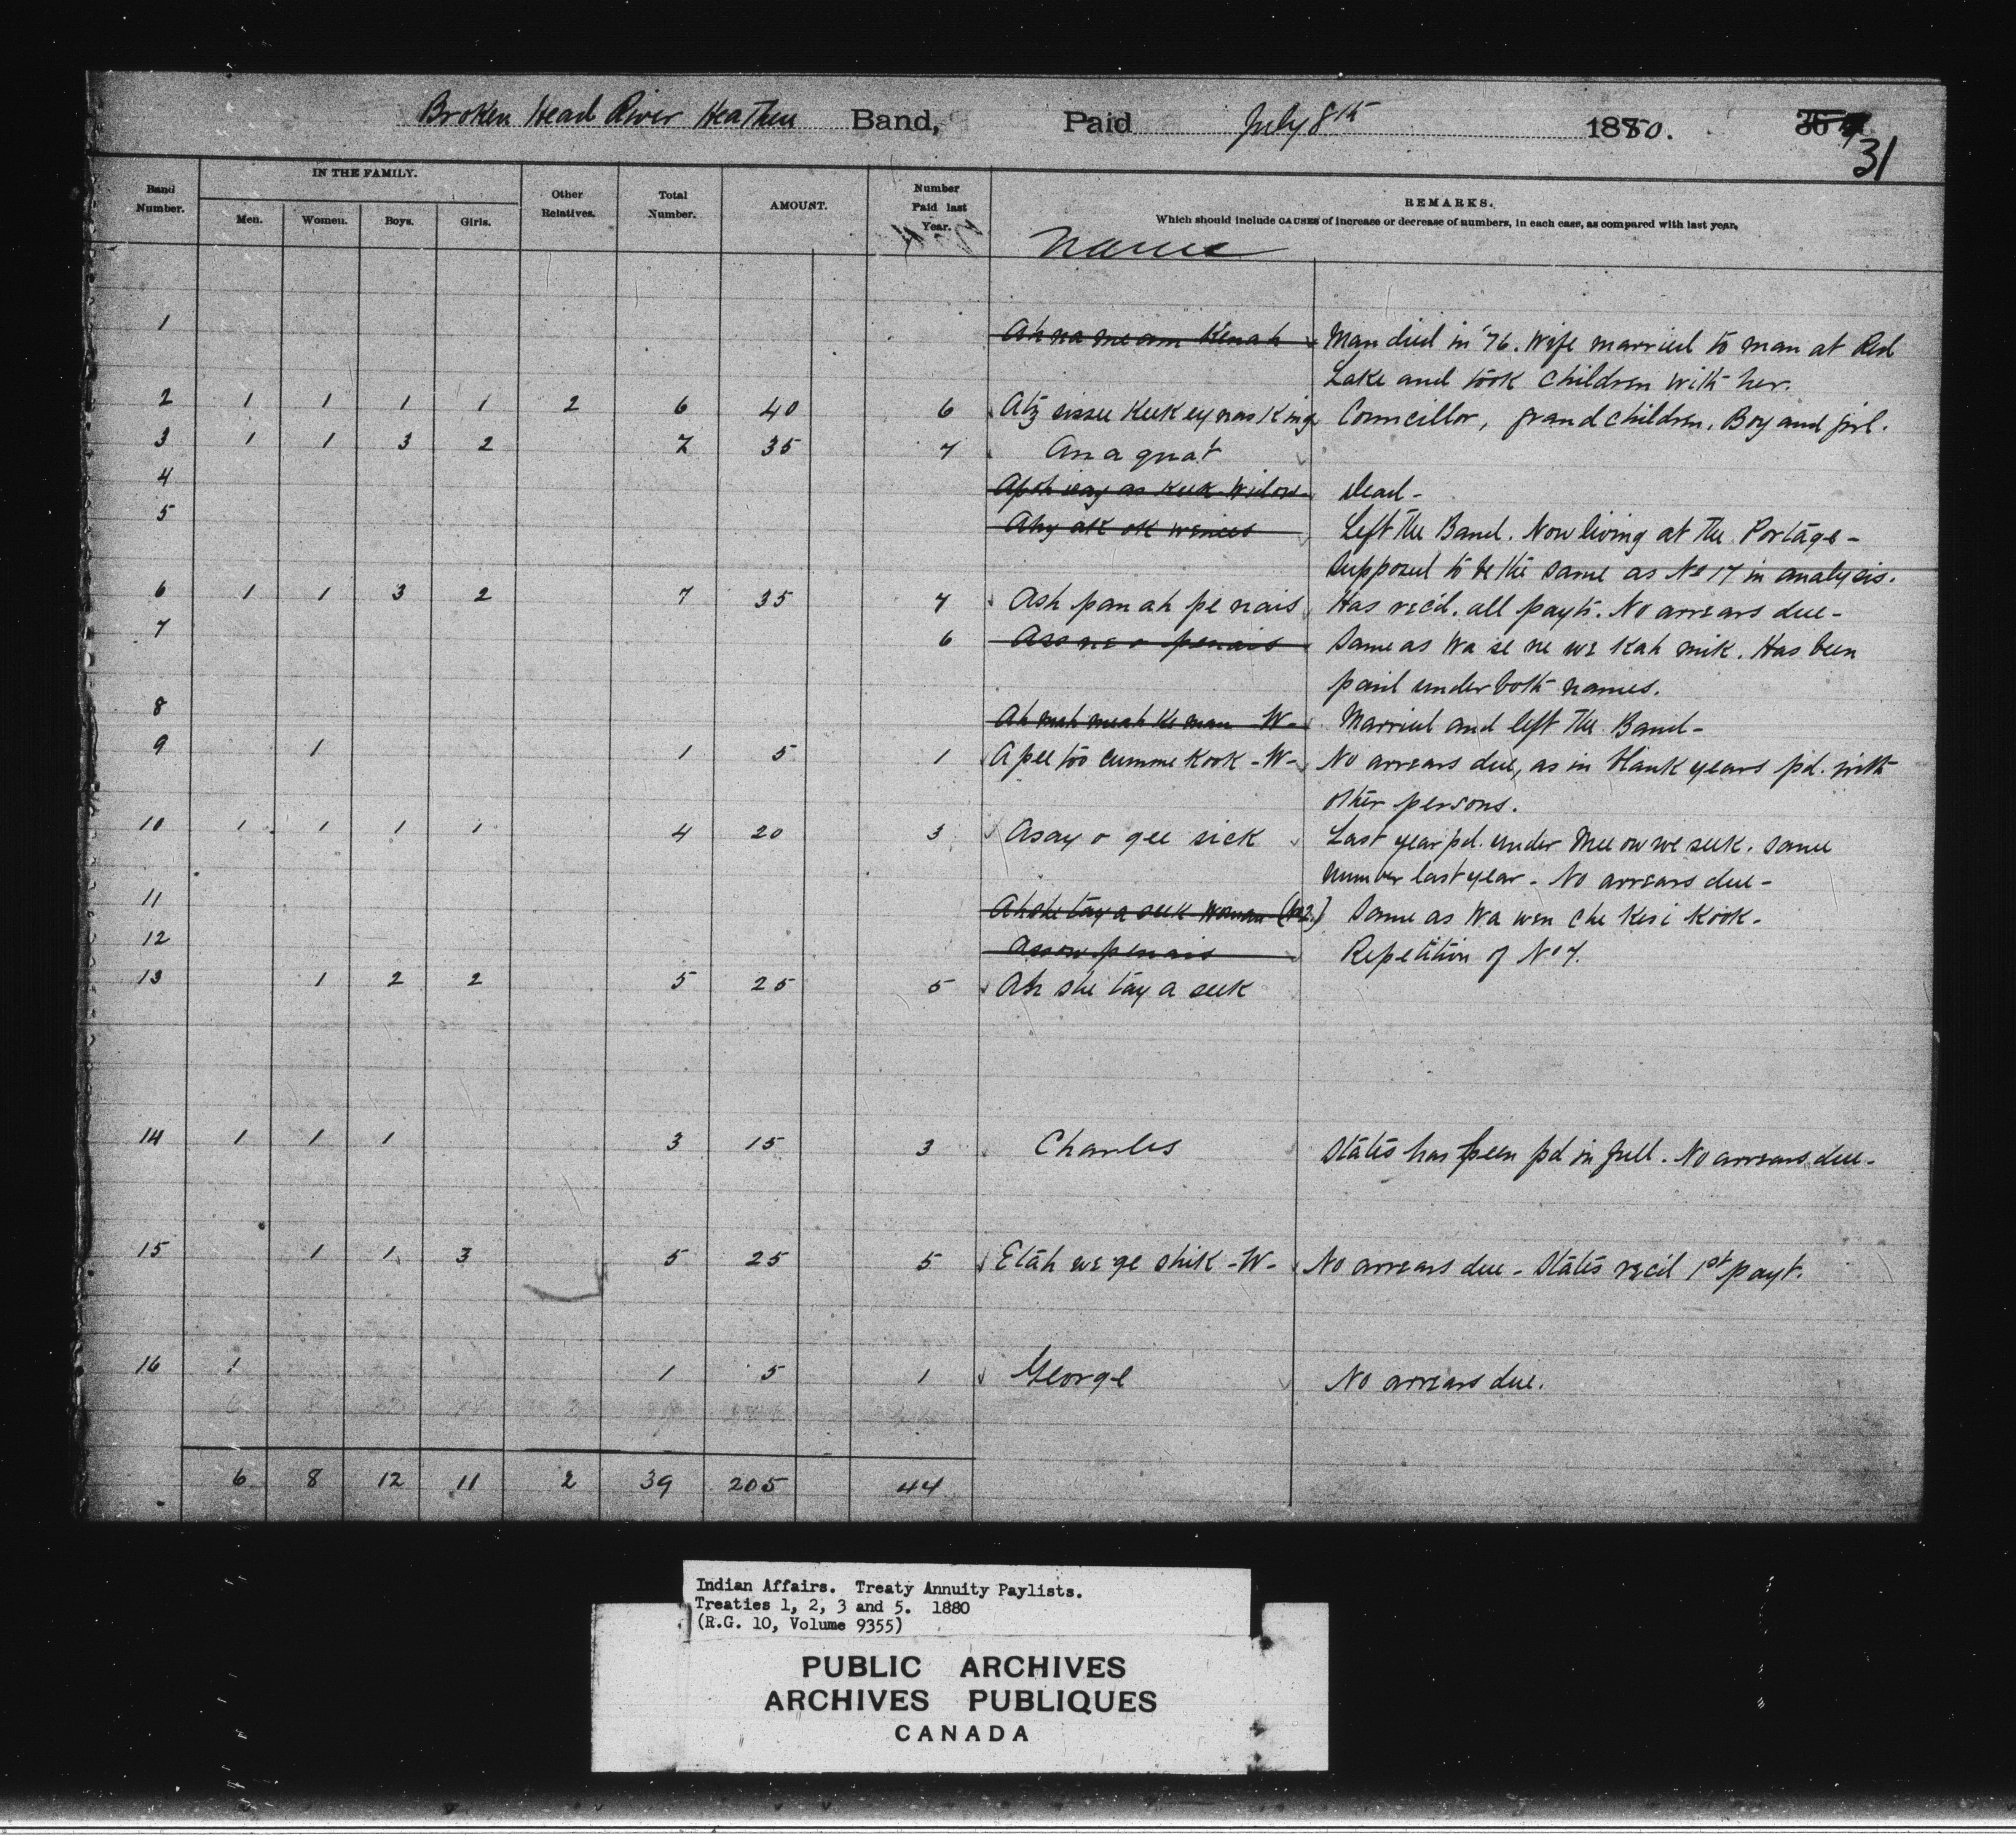 Broken Head River Heathen Band, Paid July 8th 1880. 31
Band Number. IN THE FAMILY. Men. Women. Boys. Girls. Other Relatives. Total Number. AMOUNT. Number Paid last Year. REMARKS.
Which should include CAUSES of increase or decrease of numbers, in each case, as compared with last year.
Name
1 Ah na me am Kenah Man died in '76. Wife married to man at Red
Lake and took children with her.
2 1 1 1 1 2 6 40 6 Councillor, grandchildren, Boy and girl.
3 1 1 3 2 7 35 7 An a quat
4 Widow Dead -
5 Left the Band. Now living at the Portage -
Supposed to be the same as No 17 in analysis.
6 1 1 3 2 7 35 7 Ash pan ah pe nais Has rec'd. all payts. No arrears due -
7 6 Same as Wa se ne we kah mik. Has been
paid under both names.
8 - W - Married and left the Band -
9 1 1 5 1 A pee too cumme kook - W - No arrears due, as in blank years pd. with
other persons.
10 1 1 1 1 4 20 3 Asay o gee sick Last year pd. under Mee ow we seek. Same
number last year - No arrears due -
11 Ah she tay a seek Woman (No 2.) Same as Wa wen che kesi kook -
12 Assow penais Repetition of No 7.
13 1 2 2 5 25 5 Ah she tay a seek
14 1 1 1 3 15 3 Charles States has been pd in full. No arrears due -
15 1 1 3 5 25 5 Etah we ge shik - W - No arrears due - States rec'd 1st payt.
16 1 1 5 1 George No arrears due.
6 8 12 11 2 39 205 44
Indian Affairs. Treaty Annuity Paylists.
Treaties 1, 2, 3 and 5. 1880
(R.G. 10, Volume 9355)
PUBLIC ARCHIVES
ARCHIVES PUBLIQUES
CANADA